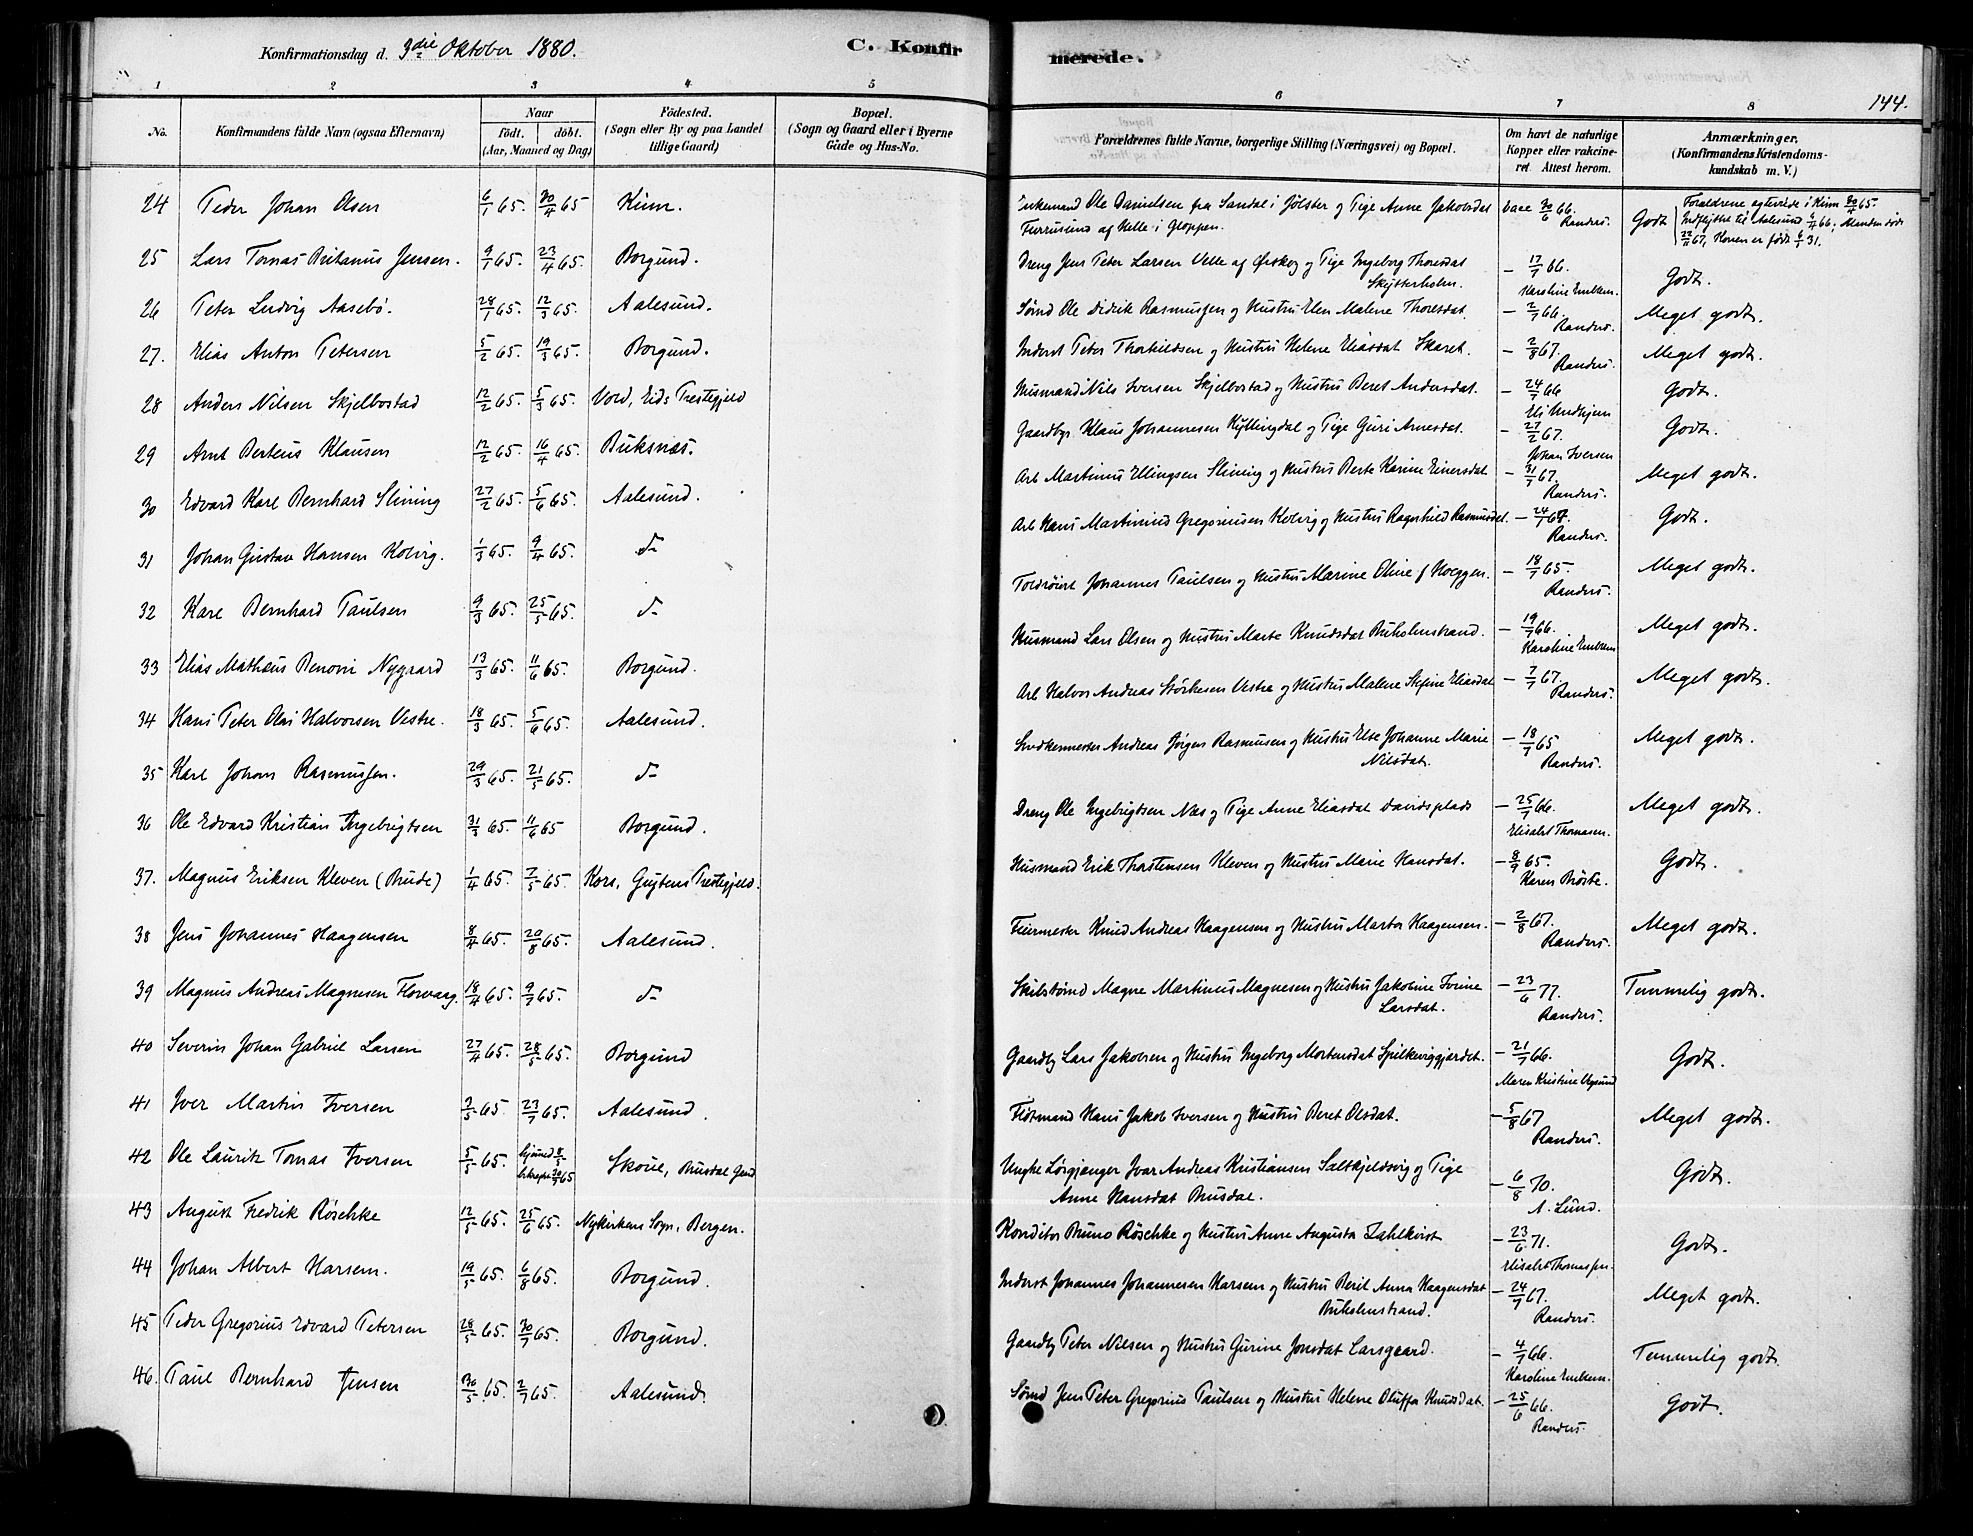 Konfirmationsdag d. 3die Oktober 1880.
C. Konfirmerede.
144.
1 2 3 4 5 6 7 8
No. Konfirmandens fulde Navn (ogsaa Efternavn) Naar födt. döbt. (Aar, Maaned og Dag) Födested. (Sogn eller By og paa Landet tillige Gaard) Bopæl. (Sogn og Gaard eller i Byerne Gade og Hus-No. Forældrenes fulde Navne, borgerlige Stilling (Næringsvei) og Bopæl. Om havt de naturlige Kopper eller vakcineret. Attest herom. Anmærkninger, (Konfirmandens Kristendomskundskab m. V.)
24 Peder Johan Olsen 6/1 65. 30/4 65 Kinn. Enkemand Ole Danielsen fra Sandal i Jölster og Pige Anne Jakobsdat Furrusund af Helle i Gloppen. vacc 30/6 66. Randers. Godt Forældrene egteviede i Kinn 30/4 65. Indflyttet til Aalesund 4/4 66. Manden död 22/2 67, Konen er födt 6/1 31.
25 Lars Tomas Britanus Jensen. 9/1 65. 23/4 65. Borgund. Dreng Jens Peter Larsen Velle af Örskog og Pige Ingeborg Thoresdat Skytterholm. – 17/7 66. Karoline Emblem. Godt.
26 Peter Ludvig Aasebö. 28/1 65. 12/3 65. Aalesund. Sömd Ole Didrik Rasmussen og Hustru Elen Malene Thoresdat. – 2/7 66. Randers. Meget godt.
27. Elias Anton Petersen 5/2 65. 19/3 65. Borgund. Inderst Peter Thorkildsen og Hustru Helene Eliasdat Skaret. – 2/8 67. Randers. Meget godt.
28 Anders Nilsen Skjelbostad 12/2 65. 5/3 65. Vold, Eids Prestegjeld Husmand Nils Iversen Skjelbostad og Hustru Beret Andersdat. – 24/7 66 Eli Undhjem Godt.
29 Arnt Berteus Klausen 12/2 65. 16/4 65. Buksnæs. Gaardbr. Klaus Johannesen Kyllingdal og Pige Guri Arnesdat. – 27/2 67. Johan Iversen Godt.
30 Edvard Karl Bernhard Slining 27/2 65. 5/6 65. Aalesund. Arb Martinus Ellingsen Slining og Hustru Berte Karine Einersdat – 31/7 67. Randers. Meget godt.
31 Johan Gustav Hansen Kolvig. 1/3 65. 9/4 65. d– Arb Hans Martinius Gregoriussen Kolvig og Hustru Ragnhild Rasmusdat. – 24/7 67. Randers. Godt.
32 Karl Bernhard Paulsen 9/3 65. 25/5 65. d– Toldröiert Johannes Paulsen og Hustru Marine Oline f Noeggen. – 18/7 65. Randers. Meget godt.
33 Elias Matheus Benoni Nygaard 13/3 65. 11/6 65. Borgund. Husmand Lars Olsen og Hustru Marte Knudsdat Buholmstrand. – 19/7 66. Karoline Emblem Meget godt.
34 Hans Peter Olai Halvorsen Vestre. 18/3 65. 5/6 65. Aalesund. Arb Halvor Andreas Störkesen Vestre og Hustru Malene Stefine Eliasdat – 7/7 67. Randers. Meget godt.
35 Karl Johan Rasmussen. 29/3 65. 21/5 65. d– Snedkermester Andreas Jörgen Rasmussen og Hustru Else Johanne Marie Nilsdat. – 18/7 65 Randers. Meget godt.
36 Ole Edvard Kristian Ingebrigtsen 31/3 65. 11/6 65 Borgund. Dreng Ole Ingebrigtsen Næs og Pige Anne Eliasdat Davidsplads – 25/7 66. Elisabet Thomasen. Meget godt.
37. Magnus Eriksen Kleven (Brude) 1/4 65. 7/5 65. Kors, Grytens Prestegjeld. Husmand Erik Thorstensen Kleven og Hustru Marie Hansdat. – 8/9 65. Karen Bröste. Godt.
38 Jens Johannes Haagensen 8/4 65. 20/8 65. Aalesund. Feiermester Knud Andreas Haagensen og Hustru Marta Haagensen. – 2/8 67. Randers. Meget godt.
39 Magnus Andreas Magnesen Florvaag. 18/4 65. 9/7 65. d– Skibstömd Magne Martinus Magnesen og Hustru Jakobine Ivrine Larsdat. – 23/6 77. Randers. Temmelig godt.
40 Severin Johan Gabriel Larsen 27/4 65. 28/5 65. Borgund Gaardb Lars Jakobsen og Hustru Ingeborg Mortensdat Spilkeviggjerdet. – 21/7 66. Maren Kristine Ugsund Godt.
41 Iver Martin Iversen 2/5 65. 23/7 65. Aalesund. Flötmand Hans Jakob Iversen og Hustru Beret Olsdat. – 5/8 67 Randers. Meget godt.
42 Ole Laurits Tomas Iversen 5/5 65. hjemmed 8/5 bekræft 30/7 65 Skoue, Brusdal Gaard Ungke Lösgjænger Ivar Andreas Kristiansen Saltkjeldsvig og Pige Anne Hansdat Brusdal. – 6/8 70. A. Lund. Godt.
43 August Fredrik Röschke 12/5 65. 25/6 65. Nykirkens Sogn, Bergen. Konditor Bruno Röschke og Hustru Anne Augusta Zahlkvist – 23/6 71. Elisabet Thomassen. Godt.
44 Johan Albert Harsem. 19/5 65. 6/8 65. Borgund. Inderst Johannes Johannesen Harsem og Hustru Beril Anna Haagensdat Buholmstrand. – 24/7 67. Randers. Meget godt.
45 Peder Gregorius Edvard Petersen 28/5 65. 30/7 65. Borgund. Gaardb Peter Nilsen og Hustru Gurine Jonsdat Larsgaard. – 4/7 66. Karoline Emblem. Temmelig godt.
46. Paul Bernhard Jensen 30/5 65. 2/7 65. Aalesund. Sömd Jens Peter Gregorius Paulsen og Hustru Helene Oluffa Knudsdat. – 25/6 66. Randers. Godt.